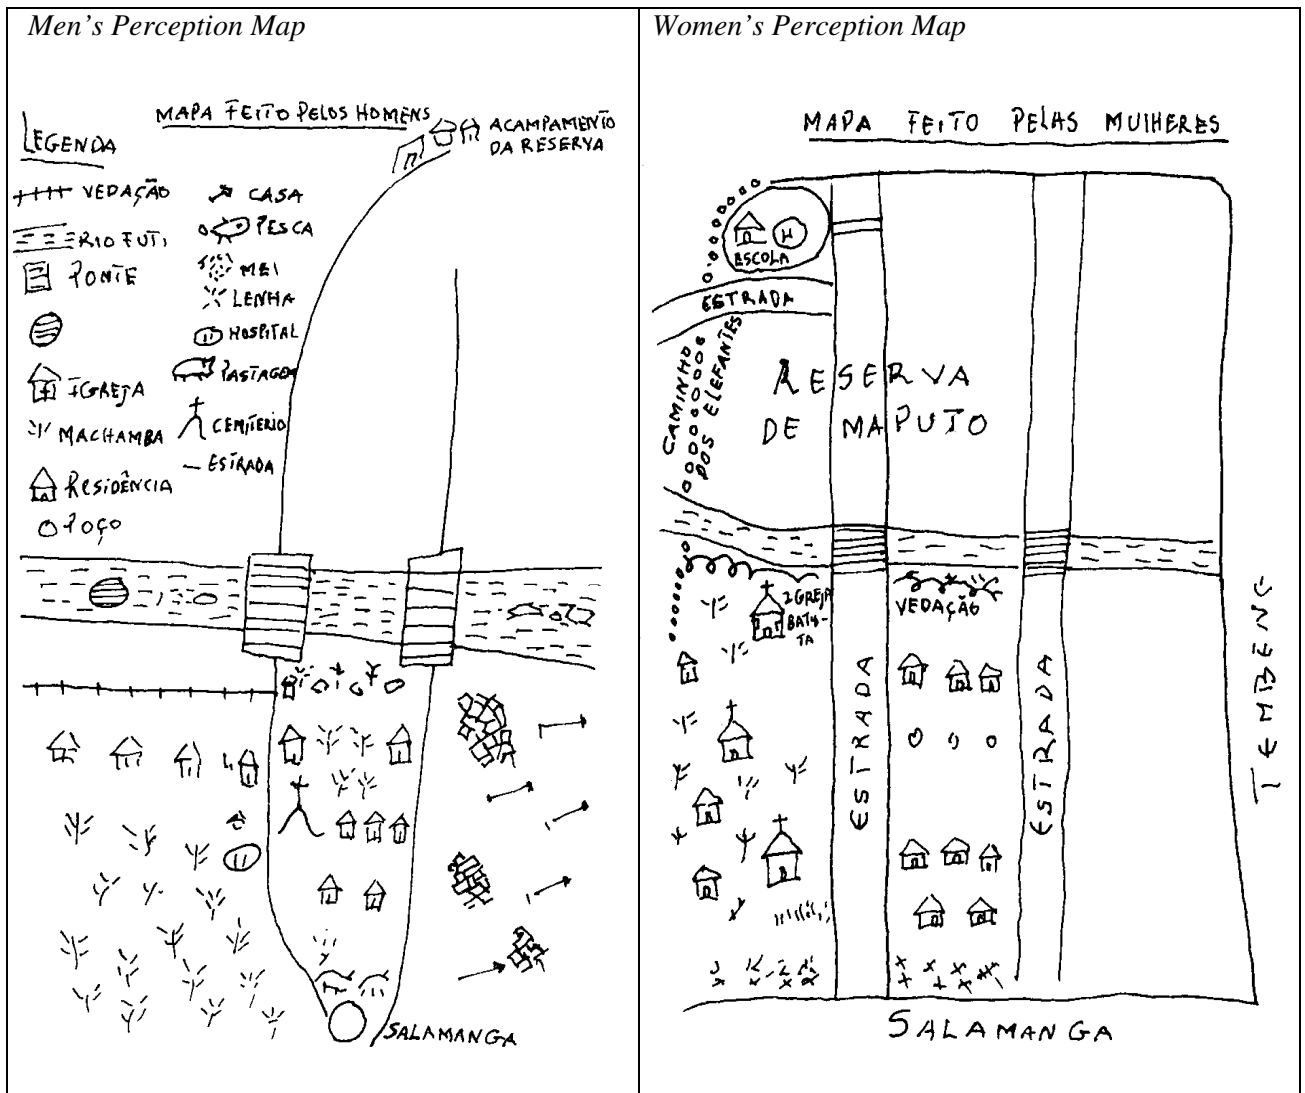 Men's Perception Map
MAPA FEITO PELOS HOMENS
ACAMPAMENTO
DA RESERVA
LEGENDA
VEDAÇÃO
RIO FUTI
PONTE
IGREJA
MACHAMBA
RESIDÊNCIA
POÇO
CASA
PESCA
MEI
LENHA
HOSPITAL
PASTAGOM
CEMITERIO
ESTRADA
SALAMANGA
Women's Perception Map
MAPA FEITO PELAS MULHERES
H
ESCOLA
ESTRADA
CAMINHO
DOS ELEFANTES
RESERVA
DE MAPUTO
IGREJA
BATIS-
TA
VEDAÇÃO
ESTRADA
ESTRADA
SALAMANGA